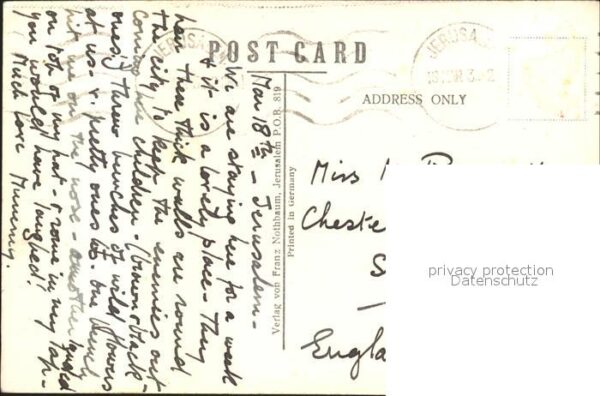 POST CARD
ADDRESS ONLY
JERUSA
JERUSA
Mar 18th - Jerusalem -
We are staying here for a week
& it is a lovely place - They
have these thick walls all round
the city to keep the enemies out -
Coming the children - (brown & black
ones) threw bunches of wild flowers
at us - v. pretty ones too - one
hit me on the nose - another landed
on top of my hat - & some in my lap -
you would have laughed!
Much love Mummy.
Verlag von Franz Nothbaum, Jerusalem P.O.B. 819
Printed in Germany
Miss
Cheste
S
Engla
privacy protection
Datenschutz